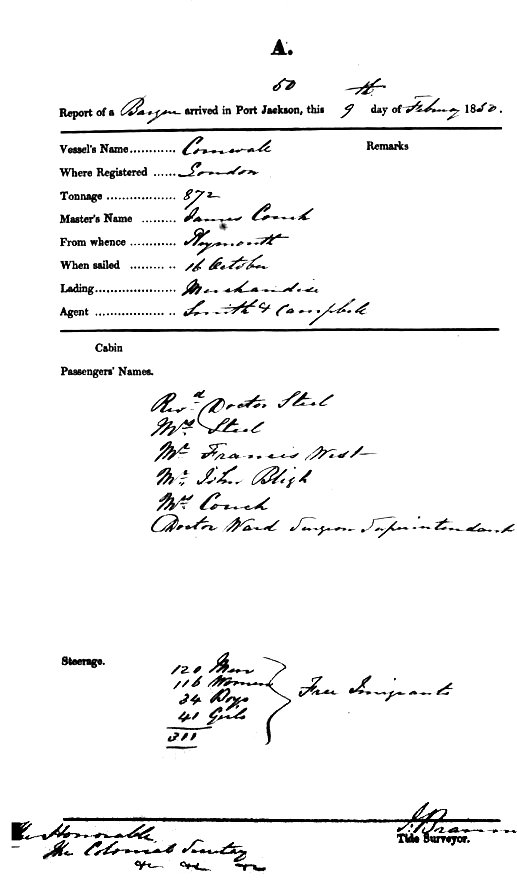 A.
50 th
Report of a arrived in Port Jackson, this 9 day of Februay 1850.
Vessel's Name............ Cornwall Remarks
Where Registered ...... London
Tonnage .................... 872
Master's Name ......... James Couch
From whence ............ Plymouth
When sailed ......... .. 16 October
Lading..................... Merchandise
Agent .................. .. Smith & Campbell
Cabin
Passengers' Names.
Revd Doctor Steel
Mrs Steel
Mr Francis West
Mr John Bligh
Mrs Couch
Doctor Ward Surgeon Superintendant
Steerage. 120 Men
116 Women
34 Boys
41 Girls
Free Imigrants
311
The Honorable
The Colonial Secretary
&c &c &c
Tide Surveyor.